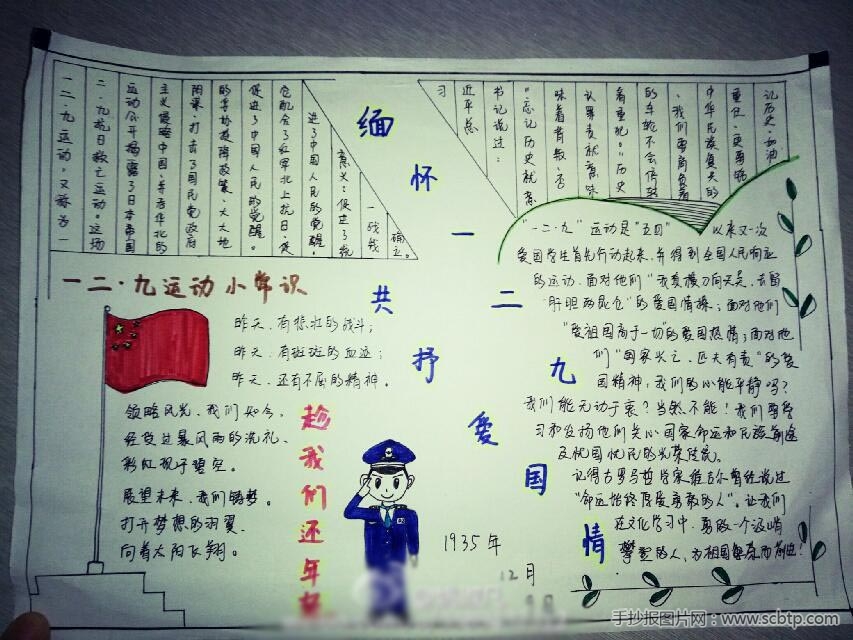 缅怀一二九
共抒爱国情
一二·九运动,又称为一
二·九抗日救亡运动。这场
运动公开揭露了日本帝国
主义侵略中国,并吞华北的
阴谋,打击了国民党政府
的妥协投降政策,大大地
促进了中国人民的觉醒。
它配合了红军北上抗日,促
进了中国人民的觉醒,
意义:促进了统
一战线
确立。
习
近平总
书记说过:
"忘记历史就意
味着背叛,否
认罪责就意味
着重犯。"历史
的车轮不会停歇
,我们要肩负着
中华民族复兴的
重任,更要铭
记历史,加油
一二·九运动小常识
昨天,有悲壮的战斗;
昨天,有斑斑的血迹;
昨天,还有不屈的精神。
领略风光,我们如今,
经受过暴风雨的洗礼,
彩虹现于碧空。
展望未来,我们铸梦。
打开梦想的羽翼,
向着太阳飞翔。
趁我们还年轻
1935年
12月
9日
"一二·九"运动是"五四" 以来又一次
爱国学生首先行动起来,并得到全国人民响应
的运动,面对他们"我自横刀向天笑,去留
肝胆两昆仑"的爱国情操;面对他们
"爱祖国高于一切"的爱国热情;面对他
们"国家兴亡,匹夫有责"的爱
国精神,我们的心能平静吗?
我们能无动于衷?当然不能!我们要学
习和发扬他们关心国家命运和民族前途
及忧国忧民的光荣传统。
记得古罗马哲学家维吉尔曾经说过
"命运始终厚爱勇敢的人"。让我们
在文化学习中,勇做一个顽强
攀登的人,为祖国繁荣而前进!
手抄报图片网：www.scbtp.com